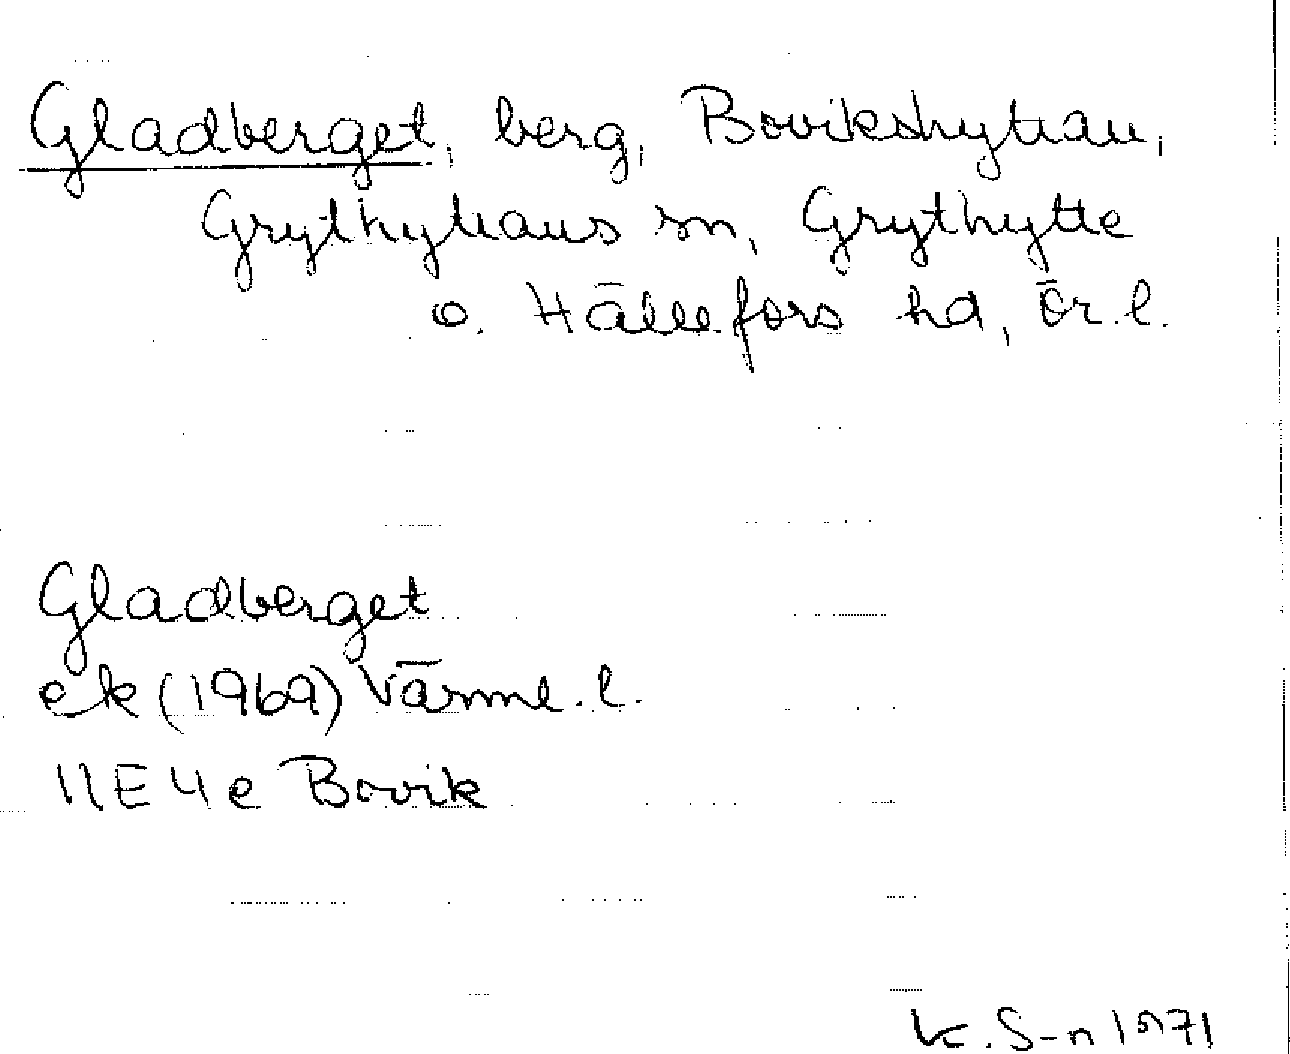 Gladberget, berg, Bovikshyttan,
Grythyttans sn, Grythytte
o. Hällefors hd, Ör. l.
Gladberget
ek (1969) Värml. l.
11E 4e Bovik
K. S-n 1971